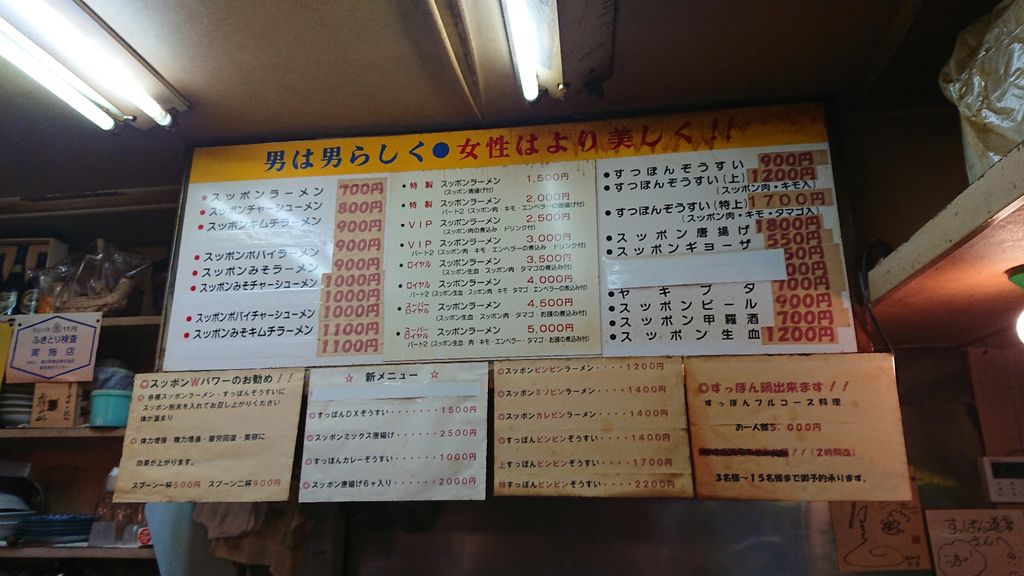 男は男らしく●女性はより美しく!!
●スッポンラーメン 700円
●スッポンチャーシューメン 800円
●スッポンキムチラーメン 900円
900円
●スッポンポパイラーメン 900円
●スッポンみそラーメン
●スッポンみそチャーシューメン 1000円
1000円
●スッポンポパイチャーシューメン 1100円
●スッポンみそキムチラーメン 1100円
●特製 スッポンラーメン 1,500円
(スッポン唐揚げ付)
●特製 スッポンラーメン 2,000円
パート2 (スッポン肉・キモ・エンペラーの唐揚げ付)
●VIP スッポンラーメン 2,500円
(スッポン肉の煮込み・ドリンク付)
●VIP スッポンラーメン 3,000円
パート2 (スッポン肉・キモ・エンペラーの煮込み・ドリンク付)
●ロイヤル スッポンラーメン 3,500円
(スッポン生血・スッポン肉・タマゴの煮込み付)
●ロイヤル スッポンラーメン 4,000円
パート2 (スッポン生血・スッポン肉・キモ・タマゴ・エンペラーの煮込み付)
●スーパーロイヤル スッポンラーメン 4,500円
(スッポン生血・スッポン肉・タマゴ・お頭の煮込み付)
●スーパーロイヤル スッポンラーメン 5,000円
パート2 (スッポン生血・肉・キモ・エンペラー・タマゴ・お頭の煮込み付)
●すっぽんぞうすい 900円
●すっぽんぞうすい(上) 1200円
(スッポン肉・キモ入)
●すっぽんぞうすい(特上) 1700円
(スッポン肉・キモ・タマゴ入)
●スッポン唐揚げ 1800円
●スッポンギョーザ 550円
●ヤキブタ 700円
●スッポンビール 900円
●スッポン甲羅酒 700円
●スッポン生血 1200円
◎スッポンWパワーのお勧め!!
◎各種スッポンラーメン・すっぽんぞうすいに
スッポン粉末を入れてお召し上がりください
体が温まり
◎体力増強・精力増進・疲労回復・美容に
効果が上がります。
スプーン一杯500円 スプーン二杯900円
☆ 新メニュー ☆
◎すっぽんDXぞうすい・・・・・・・1500円
◎スッポンミックス唐揚げ・・・・・・2500円
◎すっぽんカレーぞうすい・・・・・・1000円
◎スッポン唐揚げ6ヶ入り・・・・・・2000円
◎スッポンビンビンラーメン・・・・1200円
◎スッポンミソビンラーメン・・・・1400円
◎スッポンカレビンラーメン・・・・1400円
◎すっぽんビンビンぞうすい・・・・1400円
上すっぽんビンビンぞうすい・・・・1700円
特すっぽんビンビンぞうすい・・・・2200円
◎すっぽん鍋出来ます!!
すっぽんフルコース料理
お一人様5.000円
!!(2時間位)
3名様〜15名様まで御予約承ります。
11月
ふきとり検査
実施店
すっぽん道場
さんへ